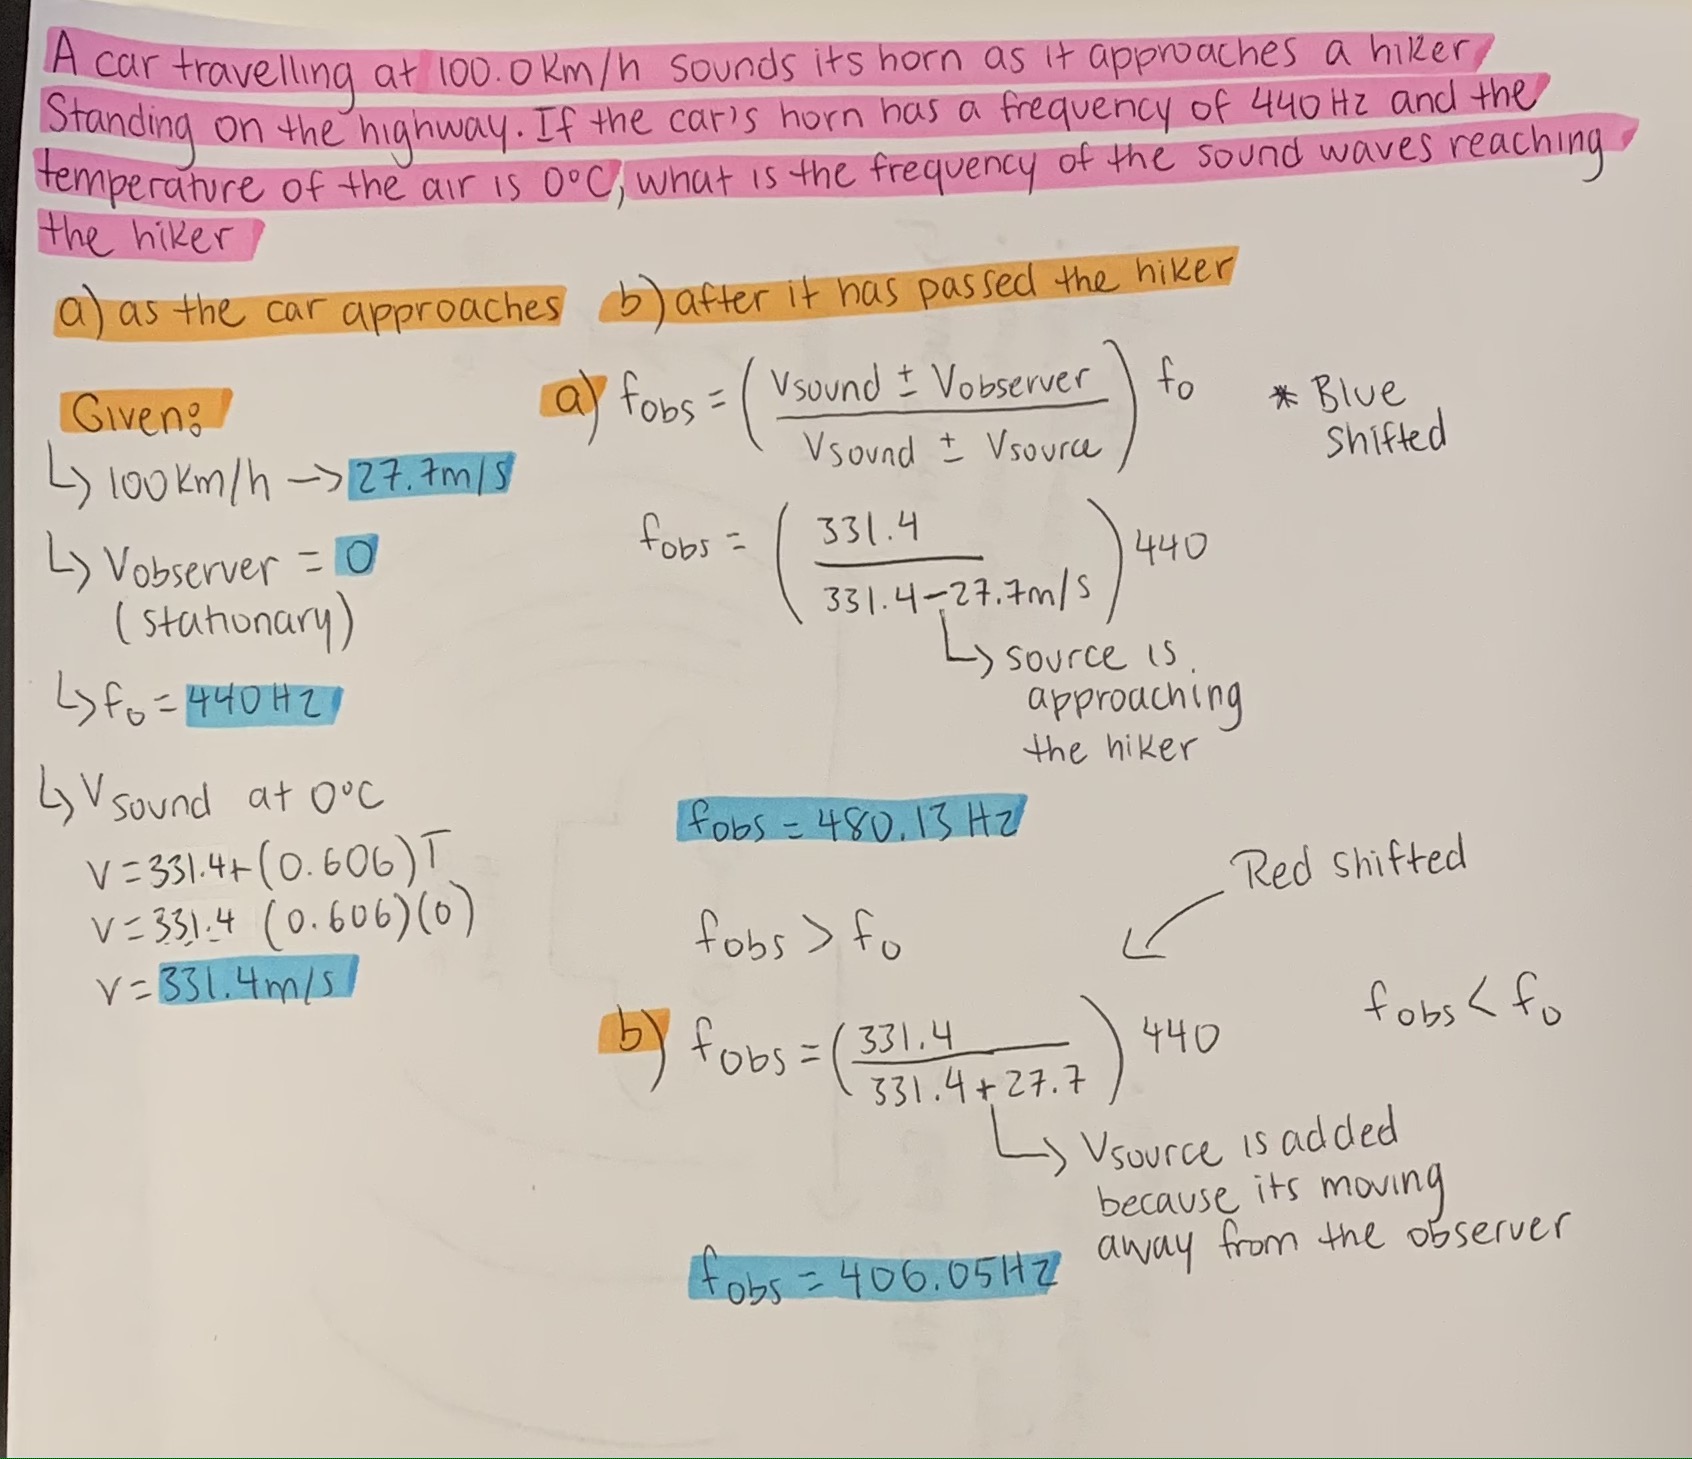 A car travelling at 100.0 Km/h sounds its horn as it approaches a hiker
Standing on the highway. If the car's horn has a frequency of 440 Hz and the
temperature of the air is 0°C, what is the frequency of the sound waves reaching
the hiker
a) as the car approaches b) after it has passed the hiker
Given:
↳ 100 Km/h → 27.7m/s
↳ Vobserver = 0
(stationary)
↳ f₀ = 440 Hz
↳ Vsound at 0°C
V = 331.4 + (0.606) T
V = 331.4 (0.606)(0)
V = 331.4 m/s
a) fobs = (Vsound ± Vobserver / Vsound ± Vsource) f₀
* Blue
shifted
fobs = (331.4 / 331.4 - 27.7m/s) 440
↳ source is
approaching
the hiker
fobs = 480.13 Hz
fobs > f₀
Red shifted
b) fobs = (331.4 / 331.4 + 27.7) 440
fobs < f₀
↳ Vsource is added
because its moving
away from the observer
fobs = 406.05 Hz